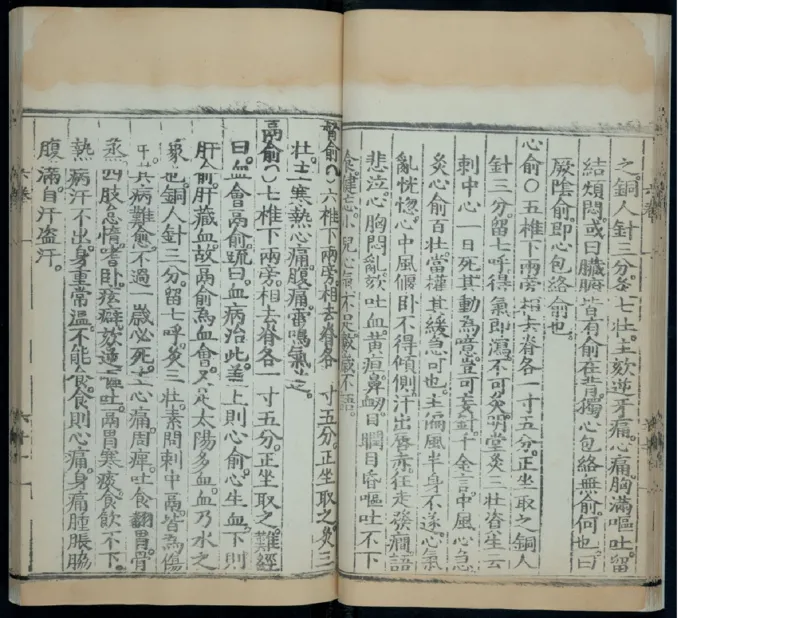 之。銅人針三分灸七壯。主欬逆牙痛。心痛。胸滿嘔吐。留
結煩悶。或曰臟腑皆有俞在背。獨心包絡無俞。何也。曰
厥陰俞。即心包絡俞也。
心俞〇五椎下兩旁相去脊各一寸五分。正坐取之銅人
針三分。留七呼。得氣即瀉。不可灸。明堂灸三壯。資生云
刺中心一日死。其動為噫。豈可妄針。千金言中風心急
灸心俞百壯。當權其緩急可也。主偏風半身不遂。心氣
亂恍惚。心中風偃臥不得傾側。汗出唇赤。狂走發癇。語
悲泣。心胸悶亂。欬吐血。黃疸。鼻衂。目瞤目昏嘔吐不下
食健忘。小兒心氣不足。數歲不語。
督俞〇六椎下兩旁。相去脊各一寸五分。正坐取之。灸三
壯。主寒熱心痛。腹痛。雷鳴氣逆。
膈俞〇七椎下兩旁。相去脊各一寸五分。正坐取之。難經
曰。血會膈俞。疏曰。血病治此。蓋上則心俞。心生血。下則
肝俞。肝藏血。故膈俞為血會。又足太陽多血。血乃水之
象也。銅人針三分。留七呼。灸三壯。素問刺中膈。皆為傷
中。其病難愈。不過一歲必死。主心痛。周痺。吐食翻胃。骨
蒸。四肢怠惰。嗜臥。痃癖。欬逆。嘔吐。膈胃寒痰。食飲不下。
熱病汗不出。身重常溫。不能食。食則心痛。身痛腫脹。脇
腹滿。自汗盜汗。